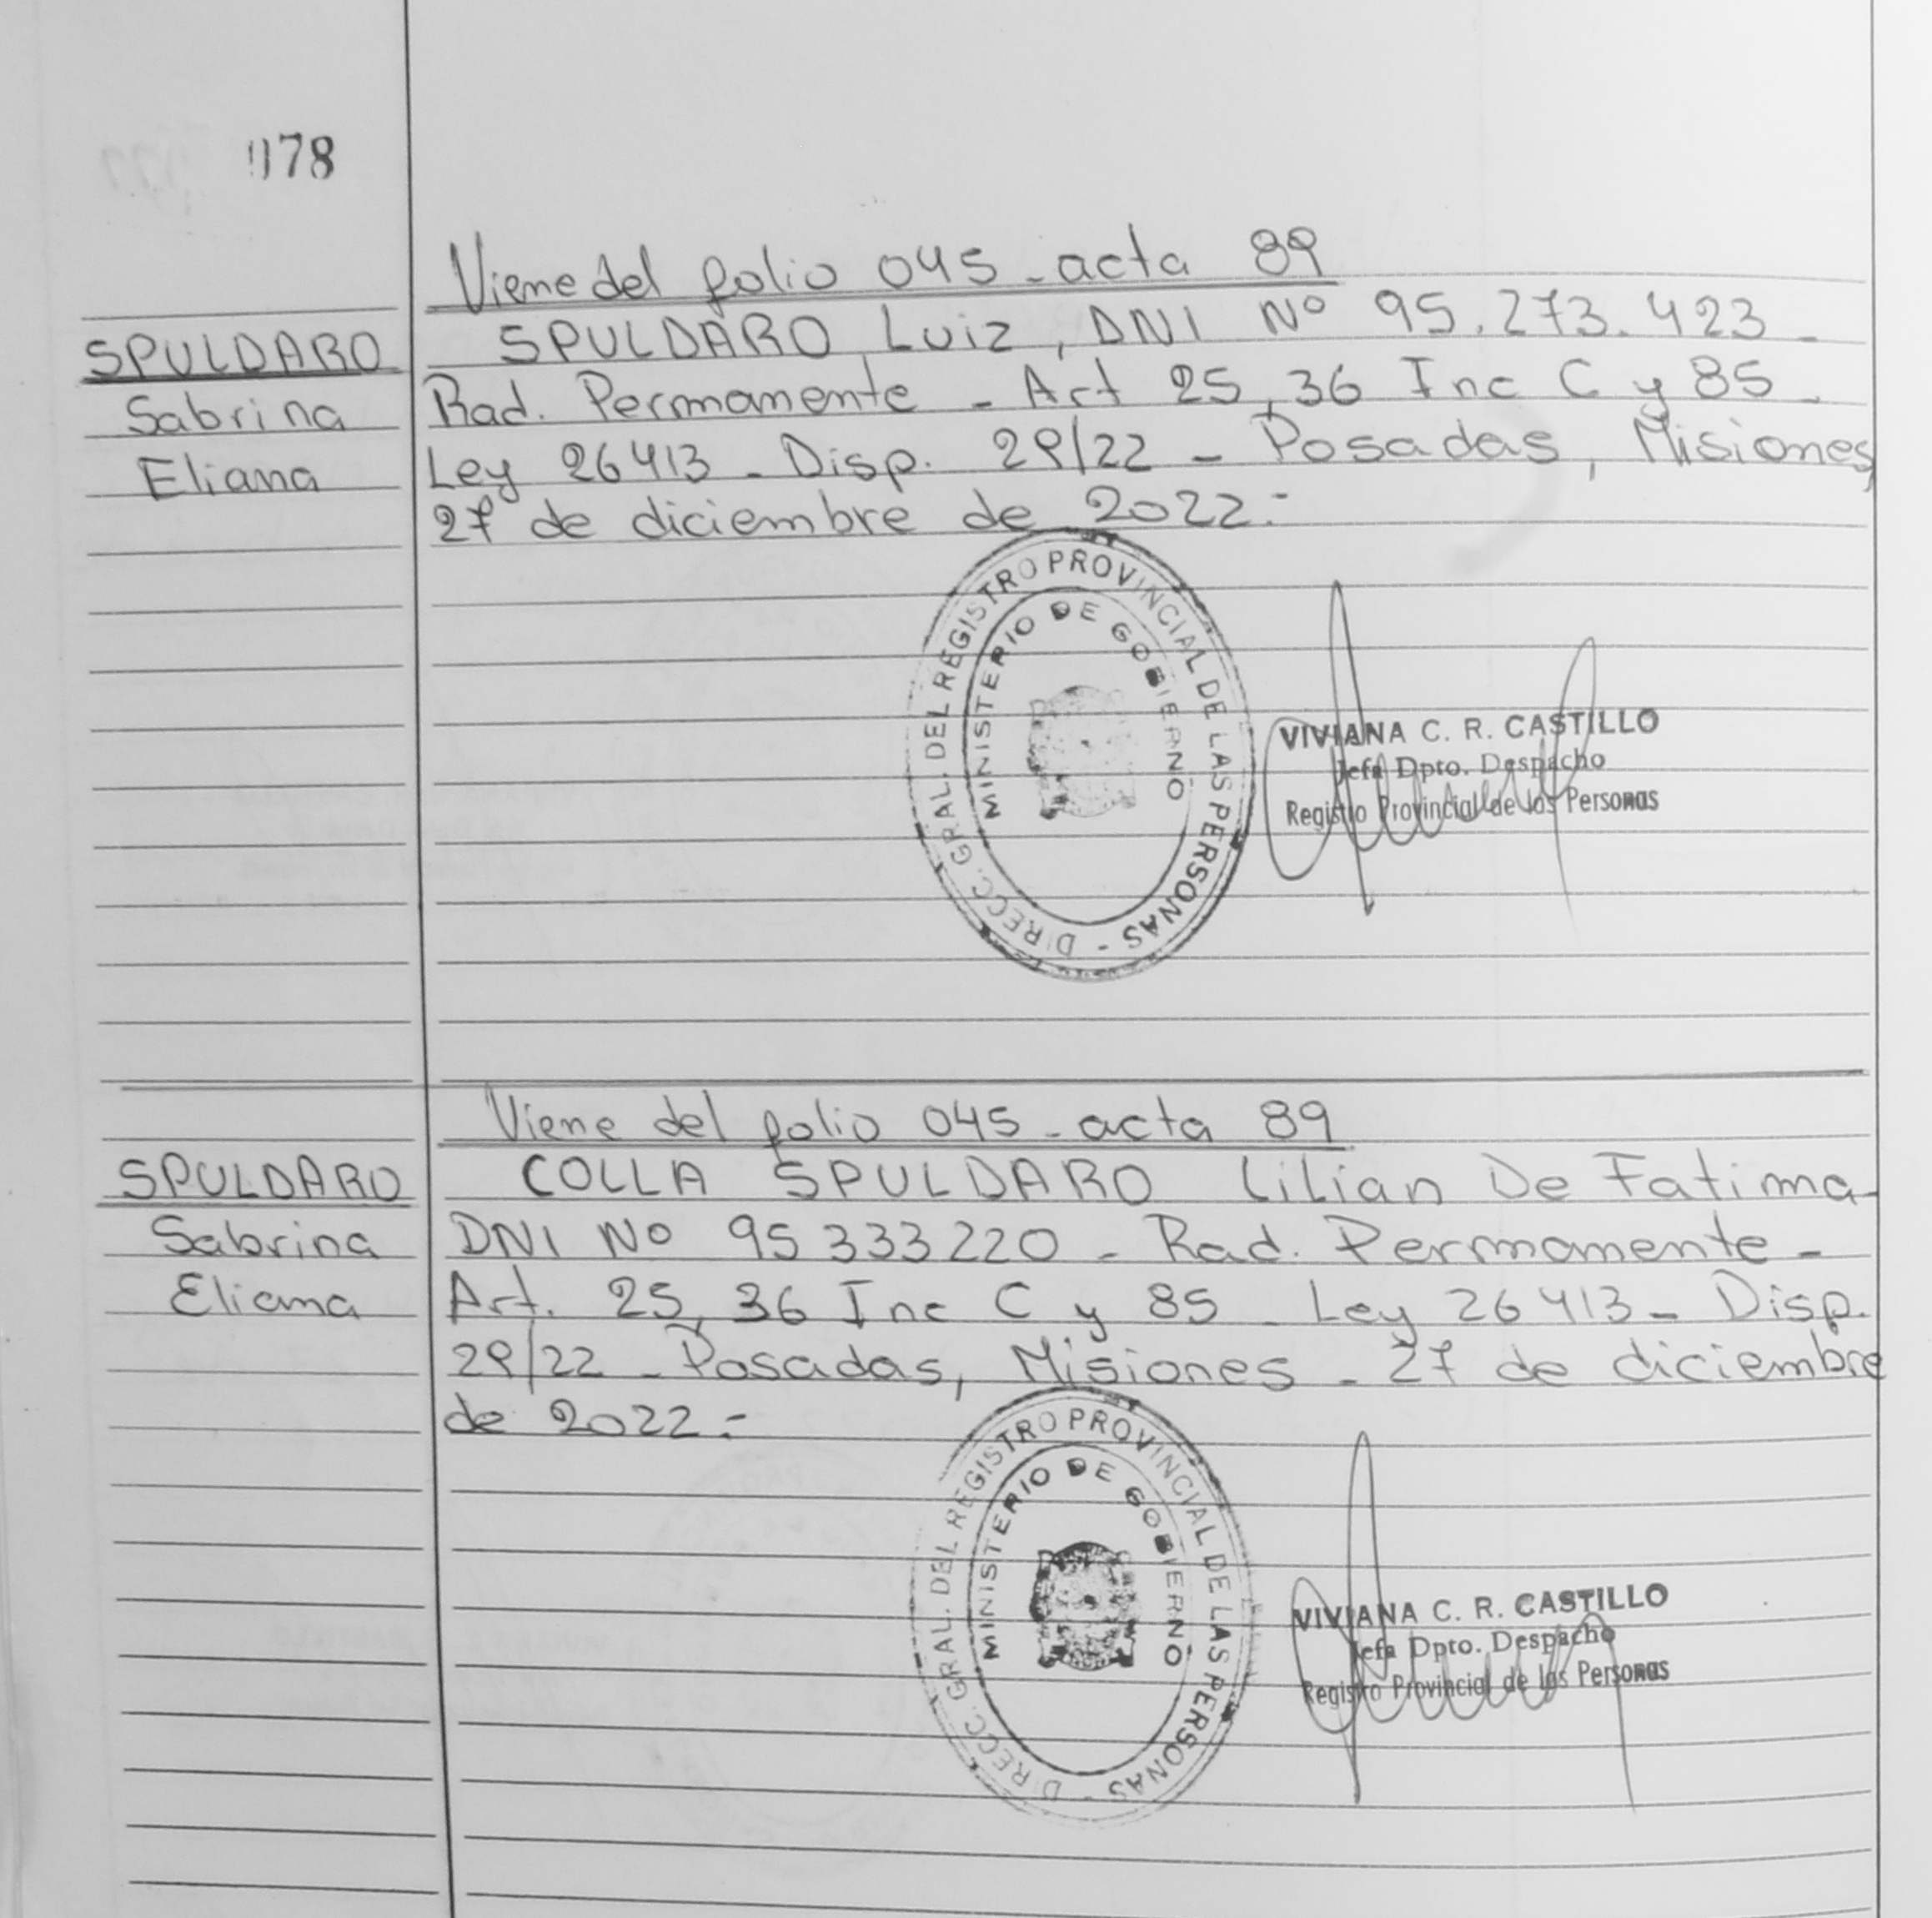 078
Viene del folio 045 - acta 89
SPULDARO
SPULDARO Luiz, DNI Nº 95.273.423 -
Sabrina
Rad. Permanente - Art 25, 36 Inc C y 85 -
Eliana
Ley 26413 - Disp. 29/22 - Posadas, Misiones
27 de diciembre de 2022.-
DIRECC. GRAL. DEL REGISTRO PROVINCIAL DE LAS PERSONAS -
MINISTERIO DE GOBIERNO
VIVIANA C. R. CASTILLO
Jefa Dpto. Despacho
Registro Provincial de las Personas
Viene del folio 045 - acta 89
SPULDARO
COLLA SPULDARO Lilian De Fatima -
Sabrina
DNI Nº 95333220 - Rad. Permanente -
Eliana
Art. 25, 36 Inc C y 85 - Ley 26413 - Disp.
29/22 - Posadas, Misiones - 27 de diciembre
de 2022.-
DIRECC. GRAL. DEL REGISTRO PROVINCIAL DE LAS PERSONAS -
MINISTERIO DE GOBIERNO
VIVIANA C. R. CASTILLO
Jefa Dpto. Despacho
Registro Provincial de las Personas